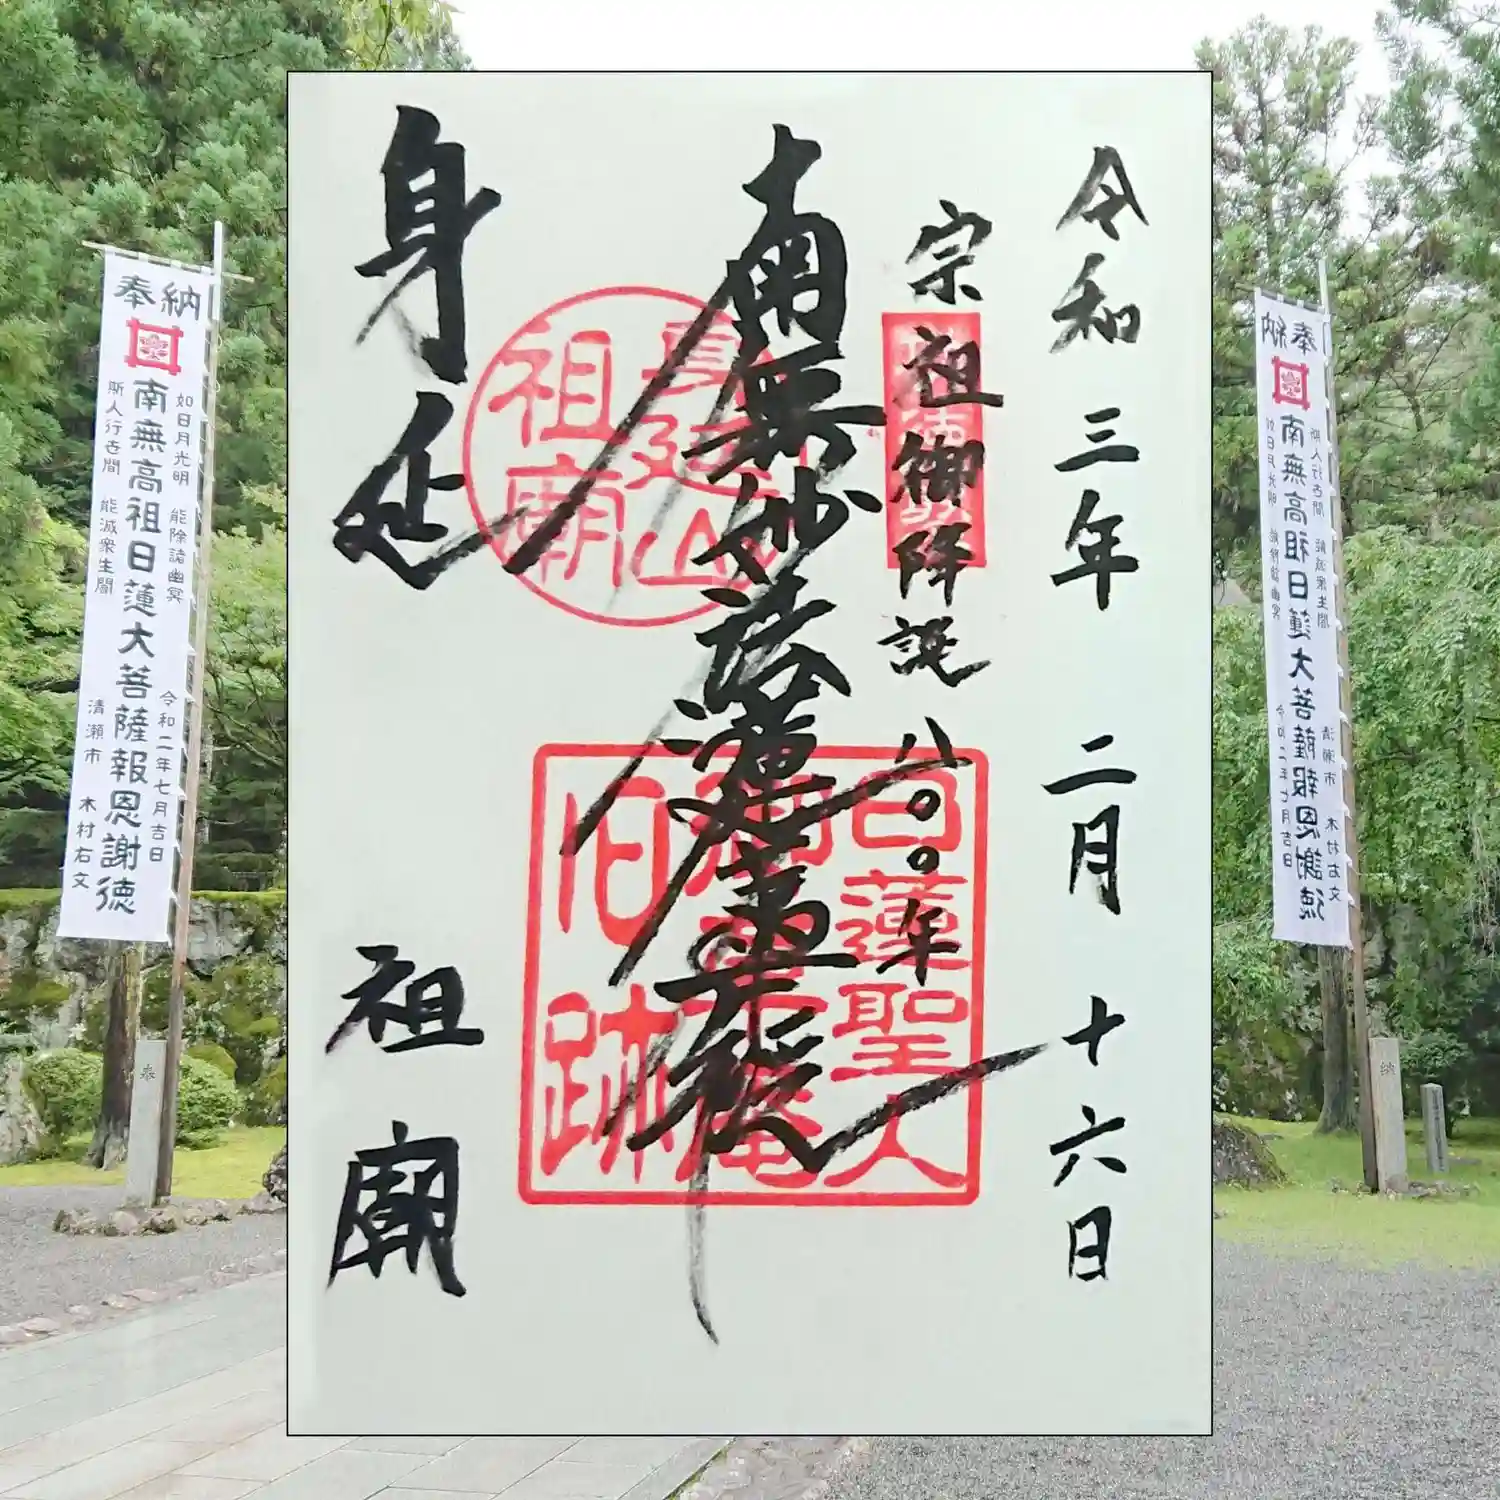 令和三年 二月 十六日
宗祖御降誕八〇〇年
南無妙法蓮華経
身延
祖廟
身延山
祖廟
日蓮聖人
御草庵
旧跡
奉納
如日月光明 能除諸幽冥 令和二年七月吉日
南無高祖日蓮大菩薩報恩謝徳
斯人行世間 能滅衆生闇 清瀬市 木村右文
奉
納
斯人行世間 能滅衆生闇 清瀬市 木村右文
南無高祖日蓮大菩薩報恩謝徳
如日月光明 能除諸幽冥 令和二年七月吉日
奉
納